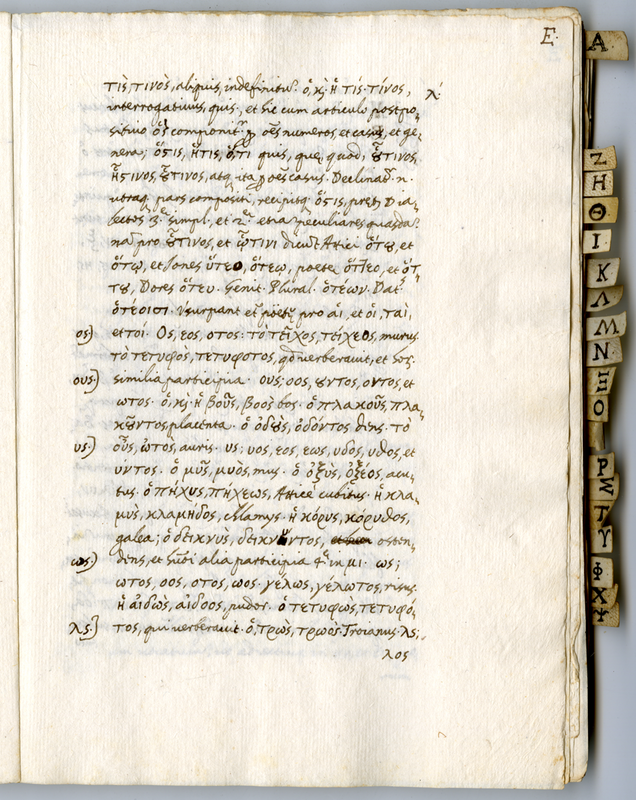 E.
τὶς τινὸς, aliquis, indefinitu. ὁ, κ ἡ τίς· τίνος, λ
interrogativus, quis, et sic cum articulo postpo-
sitivo ὃς componit p oēs numeros, et casus, et ge-
nera; ὅστις, ἥτις, ὅτι quis, que, quod, ȣ̃τινος
ἧστινος ȣ̃τινος, atq ita p oēs casus. Declinat n.
utraq pars compositi, recipitq ὅστις, preter Dia-
lectos simpl, et etiā peculiares quasdā.
nā pro ȣ̃τινος, et ᾧτινι dicūt Attici ὅτȣ, et
ὅτῳ, et Iones ὅτεο, ὅτεῳ, poete ὅττεο, et ὅτ-
τȣ, Dores ὅτευ. Genit. Plural. ὁτέων. Dat.
ὁτέοισι. Usurpant et poete pro αἱ, et οἱ, ταὶ,
ος) et τοί. Ος, εος, οτος· τὸ τεῖχος, τείχεος, murus
τὸ τετυφος, τετυφοτος, qd verberavit, et
ους) similia participia. ους; οος, ȣντος, οντος, et
ωτος. ὁ, κ ἡ βοῦς, βοὸς bos. ὁ πλακοῦς, πλα-
κȣ̃ντος, placenta. ὁ ὀδȣς, ὀδόντος dens. τὸ
υς) οὖς, ὠτὸς, auris. υς; υος, εος, εως, υδος, υθος, et
ύντος. ὁ μῦς, μυὸς, mus. ὁ ὀξὺς, ὀξέος, acu-
tus. ὁ πήχυς, πήχεως, Atticè cubitus. ἡ κλα-
μὺς, κλαμηδος, chlamys. ἡ κόρυς, κόρυθος,
galea; ὁ δεικνὺς, δεικνύντος, osten-
ως.) dens, et alia participia in μι. ως;
ωτος, οος, οτος, ωος. γέλως, γέλωτος, risus.
ἡ αἰδὼς, αἰδοος, pudor. ὁ τετυφως, τετυφό-
λς) τος, qui verberavit. ὁ, τρὼς, τρωός. Troianus. λς;
λος
A
Ζ
Η
Θ
Ι
Κ
Λ
Μ
Ν
Ξ
Ο
Ρ
Σ
Τ
Υ
Φ
Χ
Ψ